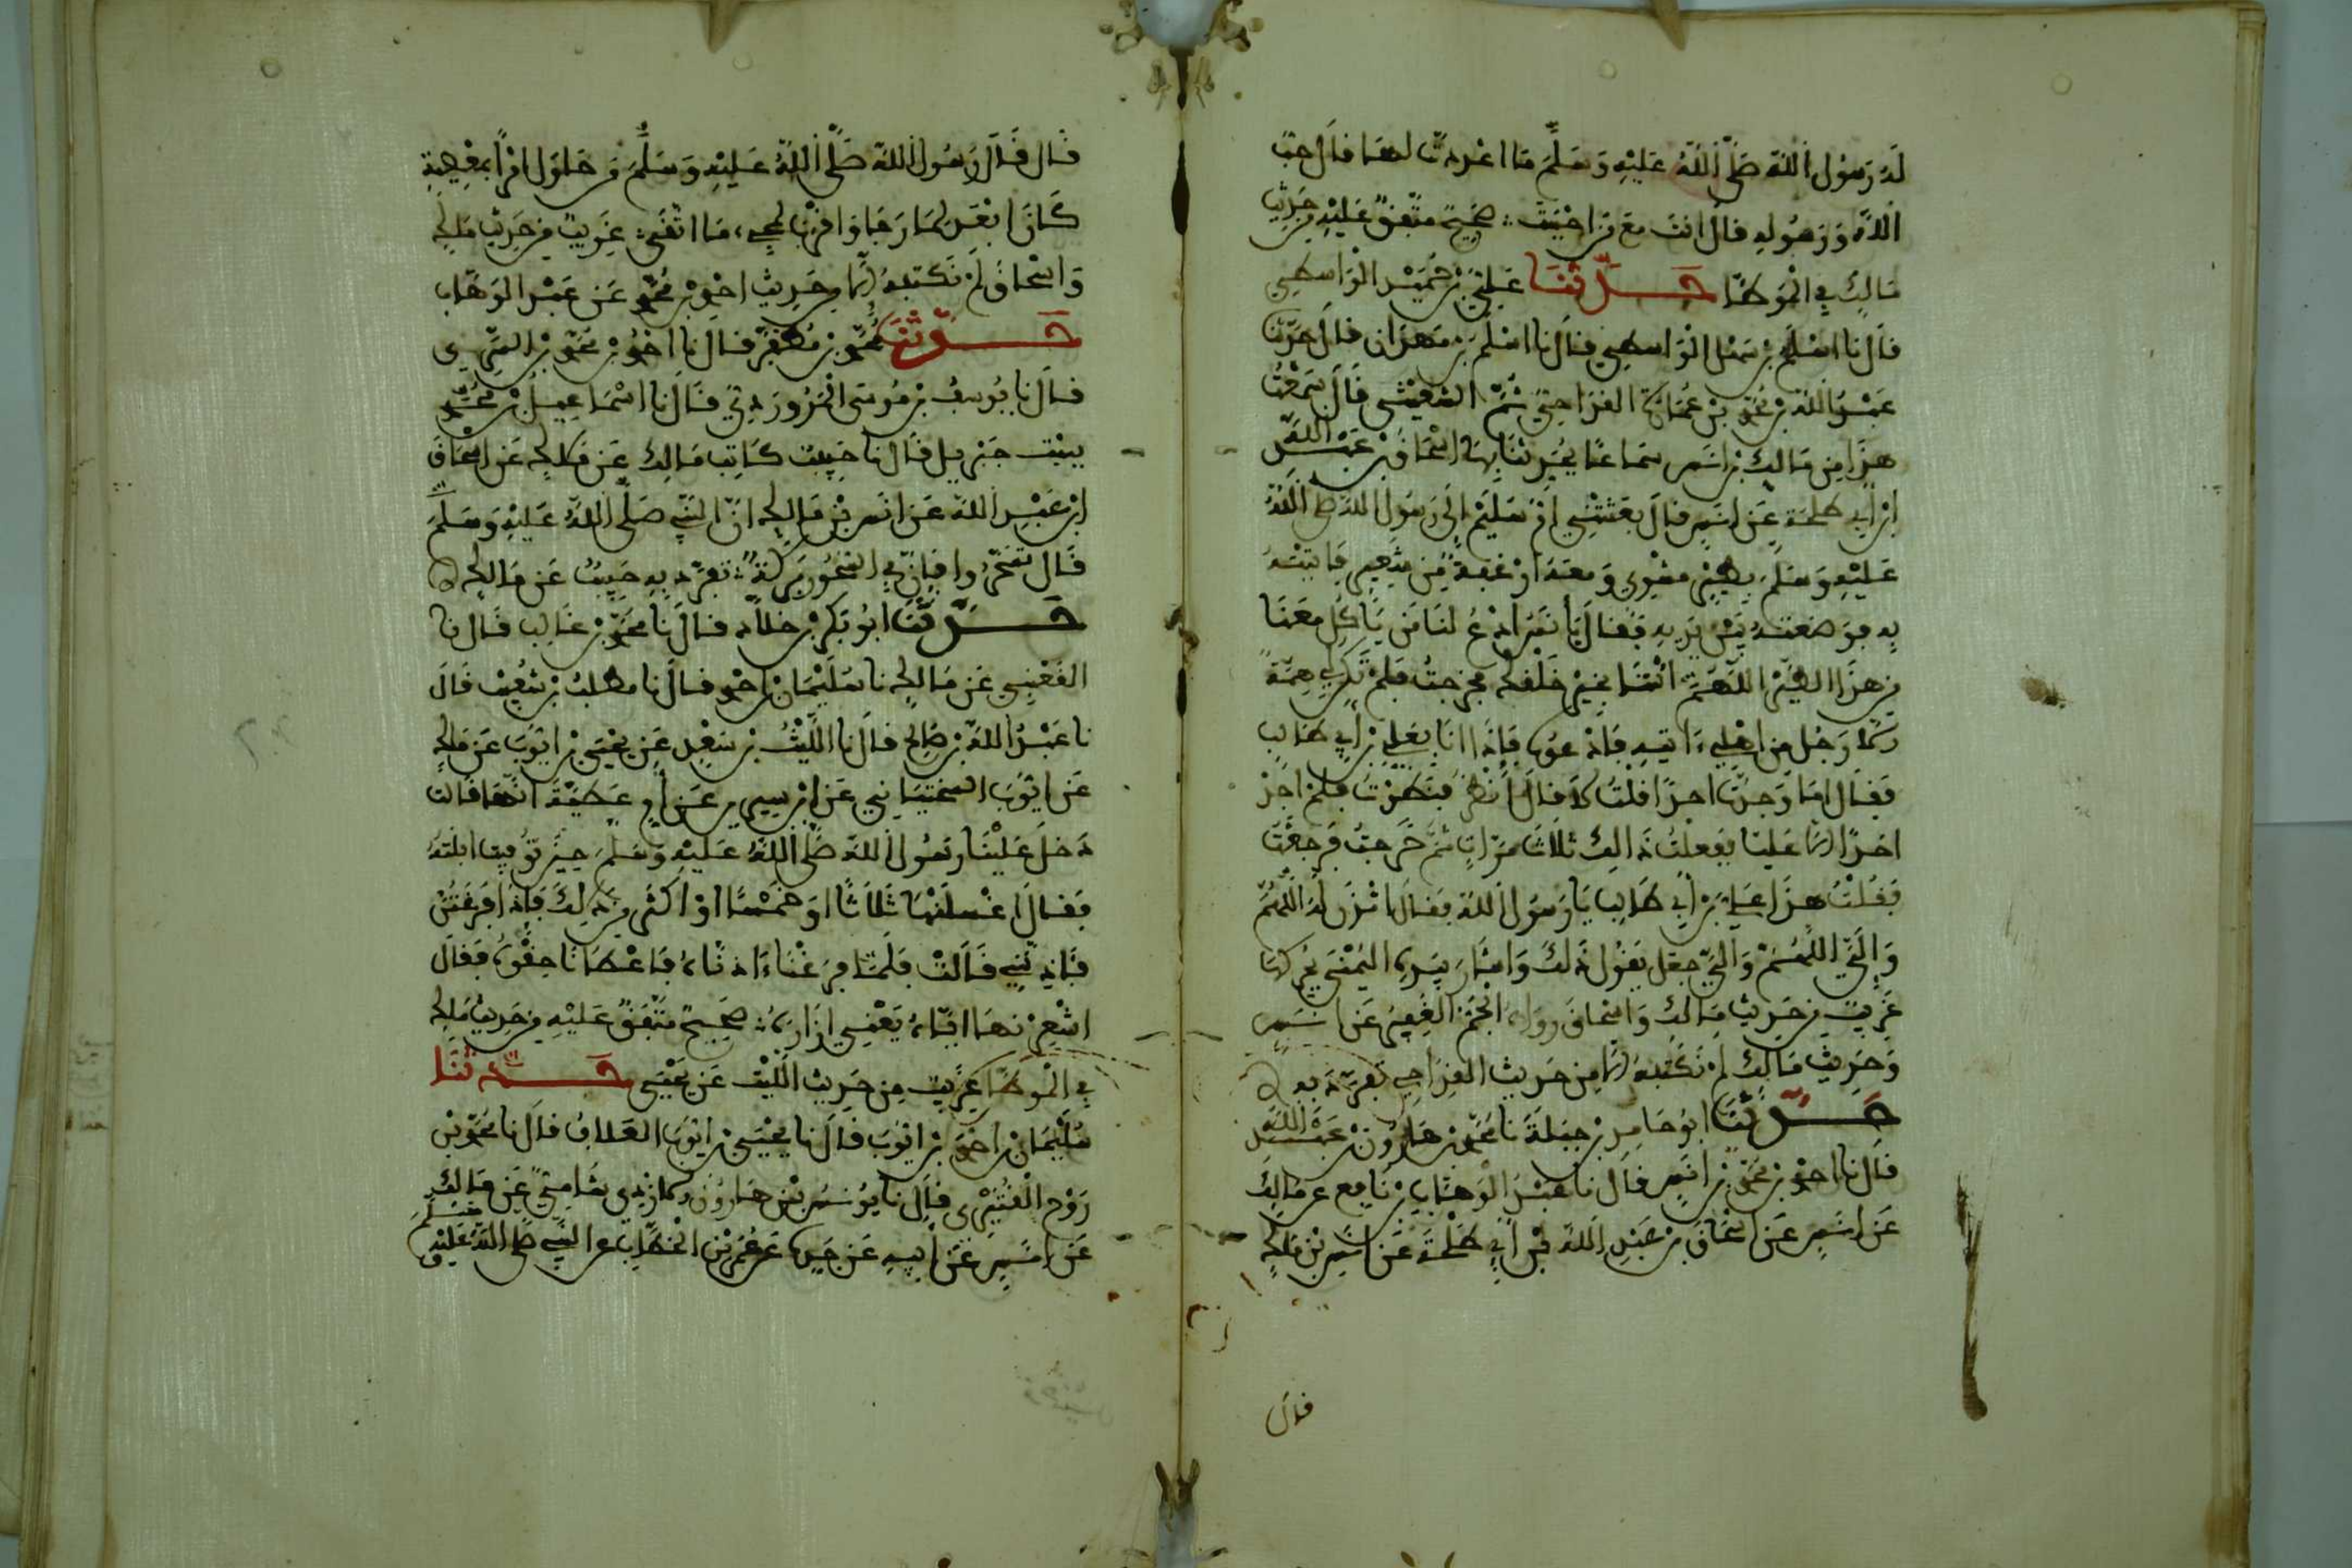 لَهُ رَسُول اللَّه صَلَّى اللَّهُ عَلَيْهِ وَسَلَّمَ مَا اعْددتّ لهَا قالَ حبّ
اللَّه وَرَسُوله قالَ انتَ مَعَ مَن احْبَبْتَ صَحِيحٌ متّفقٌ عَليْهِ مِن حَدِيث
مَالِكٍ فِي الْمُوَطّأ حَدَّثَنَا عَلِيّ بْن حُمَيْد الْوَاسطِي
قَالَ نا اسْلَم بْن سَهْل الْوَاسطِي قَالَ نا اسْلَم بْن مهْرَان قَالَ حَدّثنا
عَبْدُ اللَّه بْن مُحَمّد بْن عُمَارَة القدَاحيّ ثُمَّ السّعِيْدِي قَالَ سَمِعْتُ
هذَا مِن مَالِك بْن انَس سَمَاعًا يُحَدِّثنَا بِهِ عن اسْحَاق بْن عَبْد اللَّه
ابْن أبِي طلحَة عَن انَس قالَ بعَثَتْنِي أمّ سُلَيْم الَى رَسُول اللَّه صَلى اللَّهُ
عَليْهِ وَسَلمَ بِطَيْرٍ مشْوِيٍ وَمعَهُ ارْغفَةٌ مِّن شَعِيرٍ فَاتيْتهُ
بِهِ فوَضعْتهُ بَيْنَ يَدَيهِ فَقَالَ يَا نَسُ ادْعُ لنَا مَن يَاكلُ مَعَنَا
مِن هذَا الطّيْر اللَّهُمَّ اتنَا بِخَيْر خَلْقكَ فخرَجتُ فَلَمْ تكُن لِي هِمّةٌ
إلاّ رَجُل مِن اهْلِي ءَاتيهِ فَادْعُوهُ فَإذَا انَا بِعَلي بْن أبِي طَالِب
فَقَالَ امَا وَجَدتّ احدًا قلْتُ لاَ قالَ انْظرْ فنَظرْتُ فَلمْ اجدْ
احَدًا إلاّ عَليًّا ففعلْتُ ذَالِك ثلاثَ مَرّاتٍ ثمّ خَرَجتُ فرَجعْتُ
فقُلْتُ هذَا عَليّ بْن أبِي طَالِب يَا رَسُول اللَّه فقَالَ ائْذَن لَهُ اللَّهُمّ
وَإلَيَّ اللَّهُمَّ وَإليّ جعَل يَقُول ذَلكَ وَاشَارَ بِيَدِه اليُمْنَى يحَرّكهَا
غَرِيبٌ مِن حَدِيث مَالِكٍ وَاسْحَاقَ رَوَاه الْجَمّ الغَفِير عَن انَس
وَحَدِيثُ مَالِك لَمْ نكْتبْهُ إلاّ مِن حَدِيث القدَاحِي تفَرّدَ بِهِ
حَدَّثَنَا ابُو حَامِد بْن جبَلَة نا مُحَمّد بْن هَارُون بْن عَبْد اللَّه
قالَ نا احْمد بْن مُحَمّد بْن انَس قالَ نا عَبْدُ الْوَهَّاب بْن نَافِع عن مَالِك
عَن انَس عَن اسْحَاق بْن عَبْدِ اللَّه بْن أبِي طَلْحَة عَن انَس بْن مَالِك
قال
قَالَ قَالَ رَسُول اللَّه صَلَّى اللَّهُ عَلَيْهِ وَسَلَّمَ
وَاسْحَاق لَمْ نَكْتبْهُ إلاّ مِن حَدِيث احْمد بْن مُحَمّد عَن عَبْد الوَهَّاب
حَدَّثَنَا مُحَمّد بْن مُظَفّر قَالَ نا احْمدُ بْن مُحَمّد بْن السّرِي
قَالَ نا يُوسُفُ بْن مُوسَى الْمَرُورُوذِيّ قَالَ نا اسْمَاعِيلُ بْن مُحَمّد
ببيْت جبْرِيل قَالَ نا حَبِيبٌ كَاتِبُ مَالِك عَن مَالِك عَن اسْحَاقَ
ابْن عَبْدِ اللَّه عَن انَس بْن مَالِك انّ النَّبِي صَلَّى اللَّهُ عَليْهِ وَسَلَّمَ
قَالَ تسَحّرُوا فَإنّ فِي السّحُور بَرَكةً تفرّدَ بِهِ حَبِيبٌ عَن مَالِك
حَدَّثَنَا ابُو بَكْر بْن خَلاّد قالَ نا مُحَمّد بْن غَالِب قَالَ نا
القَعْنبِي عَن مَالِك نا سُلَيْمَان بْن احْمد قالَ نا مطّلبُ بْن شُعَيْب قَالَ
نا عَبْدُ اللَّه بْن صَالِح قالَ نا اللّيْثُ بْن سَعْدٍ عَن يحْيَى بْن ايّوبَ عَن مَالِك
عَن ايّوبَ السّختيَانِي عَن ابْن سِيرِين عَن أمِّ عَطيّةَ انَّهَا قَالت
دَخلَ عَليْنَا رَسُول اللَّه صَلَّى اللَّهُ عَليْهِ وَسَلمَ حِينَ توُفّيَت ابنَتهُ
فَقَالَ اغْسلنهَا ثَلاَثًا اوْ خَمْسًا اوْ اكْثَرَ مِن ذلِكَ فَإذَا فرَغتُنّ
فَئاذِنَّنِي قَالَتْ فَلَمّا فرَغْنَا ءَاذنّاهُ فَاعْطَانَا حِقْوَهُ فقَالَ
اشْعِرْنهَا ايّاهُ يَعْنِي ازَارَه صَحِيحٌ متّفقٌ عَليْهِ مِن حَدِيث مَالِك
فِي الْمُوَطّأ غَرِيبٌ مِن حَدِيث اللّيْث عَن يَحْيَى حَدَّثَنَا
سُلَيْمَان بْن احْمَد بْن ايّوبَ قَالَ نا يحْيَى بْن ايّوبَ العَلاّفُ قَالَ نا مُحَمّد بْن
رَوْح الْقُتَيْرِي قالَ نا يُونسُ بْنُ هَارُون الازدِي شَامِيّ عَن مَالِكِ
عَن انَسِ عَن أبِيهِ عَن جَدِّه عَن عُمَر بْن الْخَطّاب عن النَّبِي صَلى اللَّهُ عَليْهِ وَسَلم